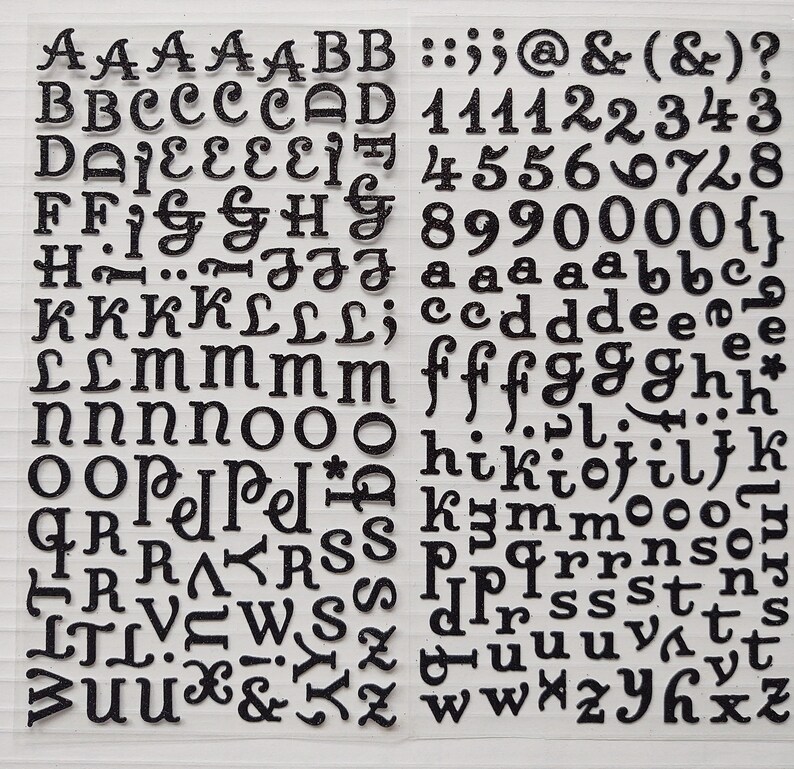 A A A A A B B
B B C C C C D D
D D i E E E E i F
F F i G G H G
H i i J J J
K K K K L L L ;
L L m m m m
n n n n o o o
o o P P P P * q
q R R V Y R S S
T R V U W S S
T T T . ! Y Z
W U U X & Y Z
: : ; ; @ & ( & ) ?
1 1 1 1 2 2 3 4 3
4 5 5 6 6 7 7 8
8 9 9 0 0 0 0 { }
a a a a a b b c e
c c d d d e e e e e
f f f g g g h h *
h i k i o j i l j k
k m m m o o o l n
p p q r r n s o r
p r s s s t t n s
q u u u v v v t
w w x z y h x z